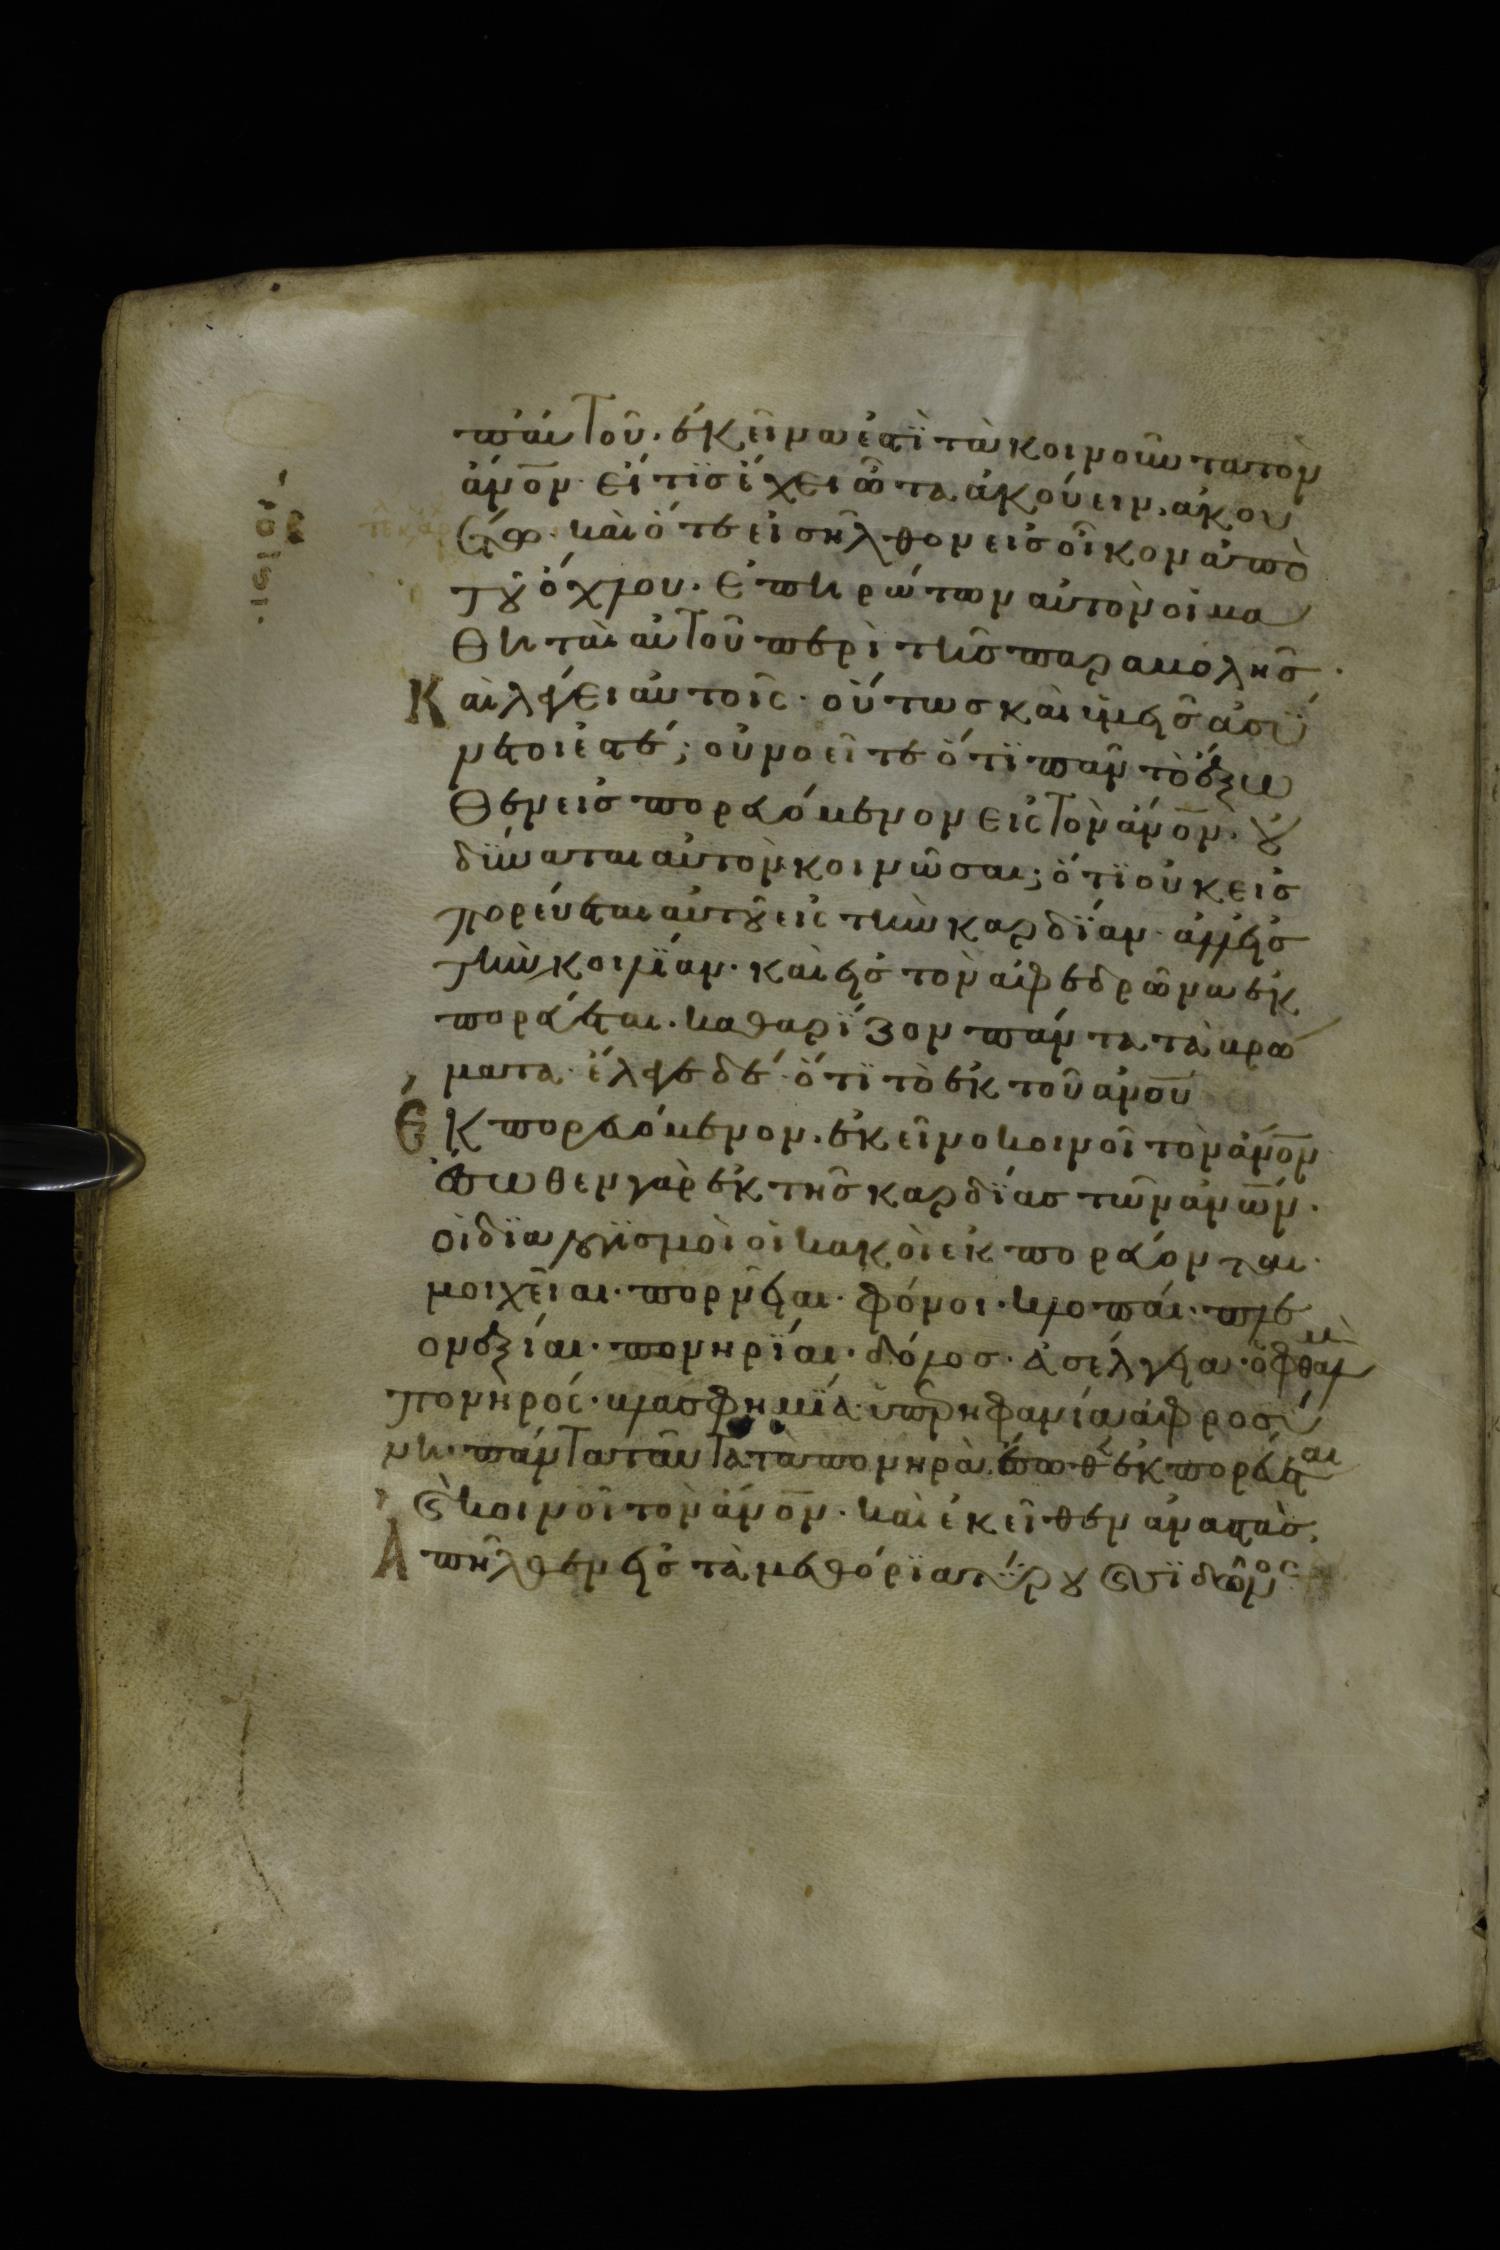 π' αὐτοῦ. ἐκεῖνα ἐστὶ τὰ κοινοῦντα τὸν
ἄνον· εἴ τις ἔχει ὦτα ἀκούειν. ἀκου
έτω· καὶ ὅτε εἰσῆλθον εἰς οἶκον ἀπὸ
τοῦ ὄχλου. ἐπηρώτων αὐτὸν οἱ μα
θηταὶ αὐτοῦ περὶ τῆς παραβολῆς·
Καὶ λέγει αὐτοῖς· οὕτως καὶ ὑμεῖς ἀσύ
νετοί ἐστέ; οὐ νοεῖτε ὅτι πᾶν τὸ ἔξω
θεν εἰσπορευόμενον εἰς τὸν ἄνον. οὐ
δύναται αὐτὸν κοινῶσαι; ὅτι οὐκ εἰσ
πορεύεται αὐτοῦ εἰς τὴν καρδίαν. ἀλλ' εἰς
τὴν κοιλίαν. καὶ εἰς τὸν ἀφεδρῶνα ἐκ
πορεύεται. καθαρίζον πάντα τὰ βρώ
ματα. ἔλεγε δέ· ὅτι τὸ ἐκ τοῦ ἀνου
Ἐκπορευόμενον. ἐκεῖνο κοινοῖ τὸν ἄνον
ἔσωθεν γὰρ ἐκ τῆς καρδίας τῶν ἀνων.
οἱ διαλογισμοὶ οἱ κακοὶ ἐκπορεύονται·
μοιχεῖαι. πορνεῖαι. φόνοι. κλοπαί. πλε
ονεξίαι. πονηρίαι. δόλος. ἀσέλγεια. ὀφθαλμὸ
πονηρός. βλασφημία. ὑπερηφανία ἀφροσύ
νη. πάντα ταῦτα τὰ πονηρὰ ἔσωθεν ἐκπορεύεται
καὶ κοινοῖ τὸν ἄνον. καὶ ἐκεῖθεν ἀναστὰς,
Ἀπῆλθεν εἰς τὰ μεθόρια τύρου καὶ σιδῶνος